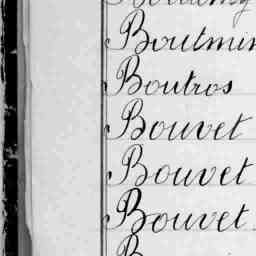 Boutmin
Boutros
Bouvet
Bouvet
Bouvet